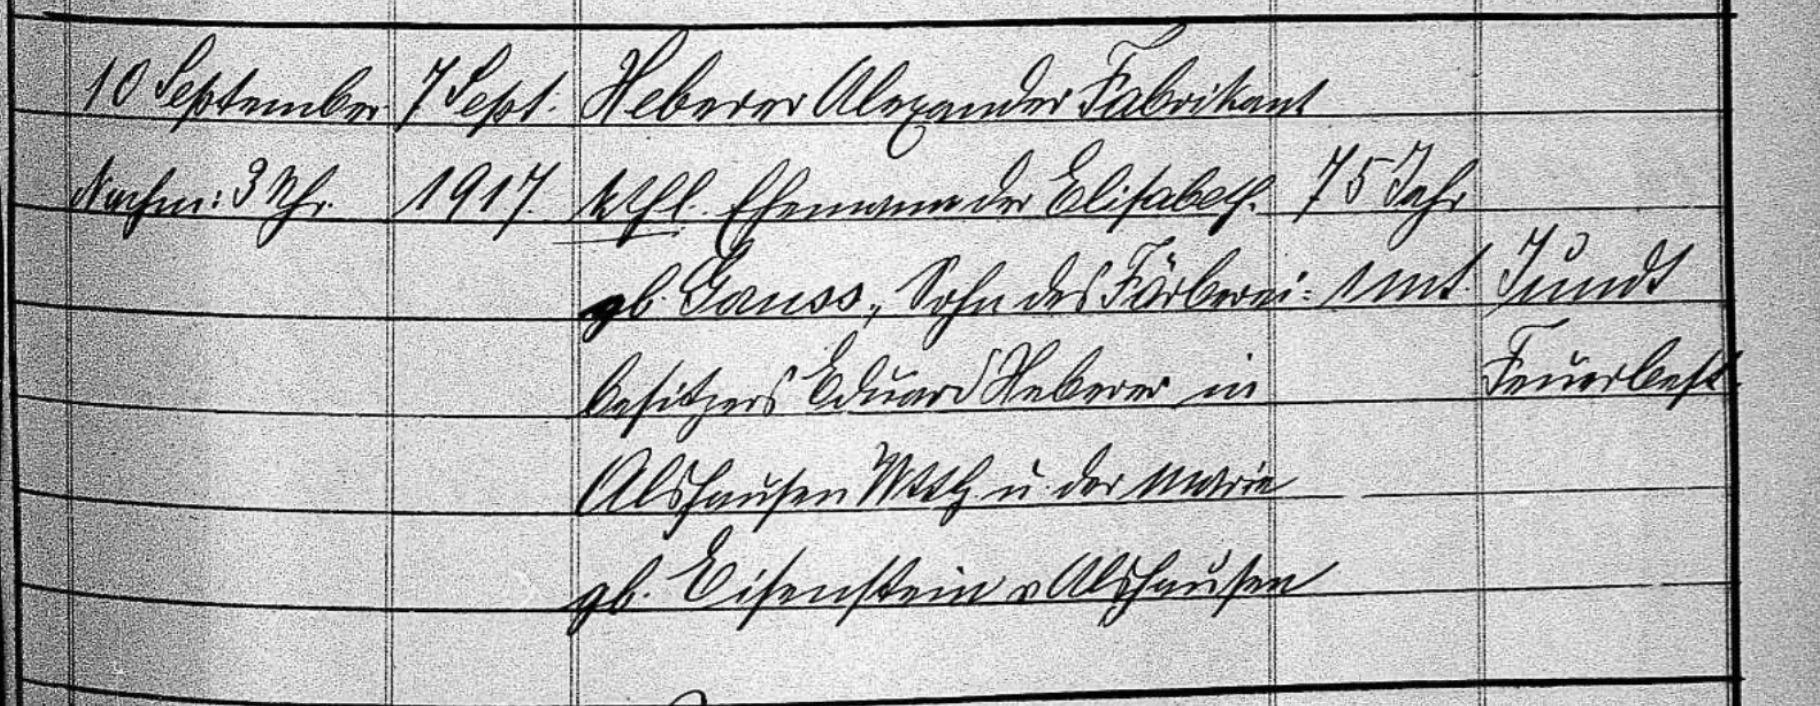 10 September 7 Sept. Heberer Alexander Fabrikant
Nachm: 3 Uhr. 1917. kthl. Ehemann der Elisabeth. 75 Jahr
gb. Gauss, Sohn des Färberei= Jundt
besitzers Eduard Heberer in Feuerbest.
Alshausen Wttbg. u. der Marie
gb. Eisenstein v Alshausen